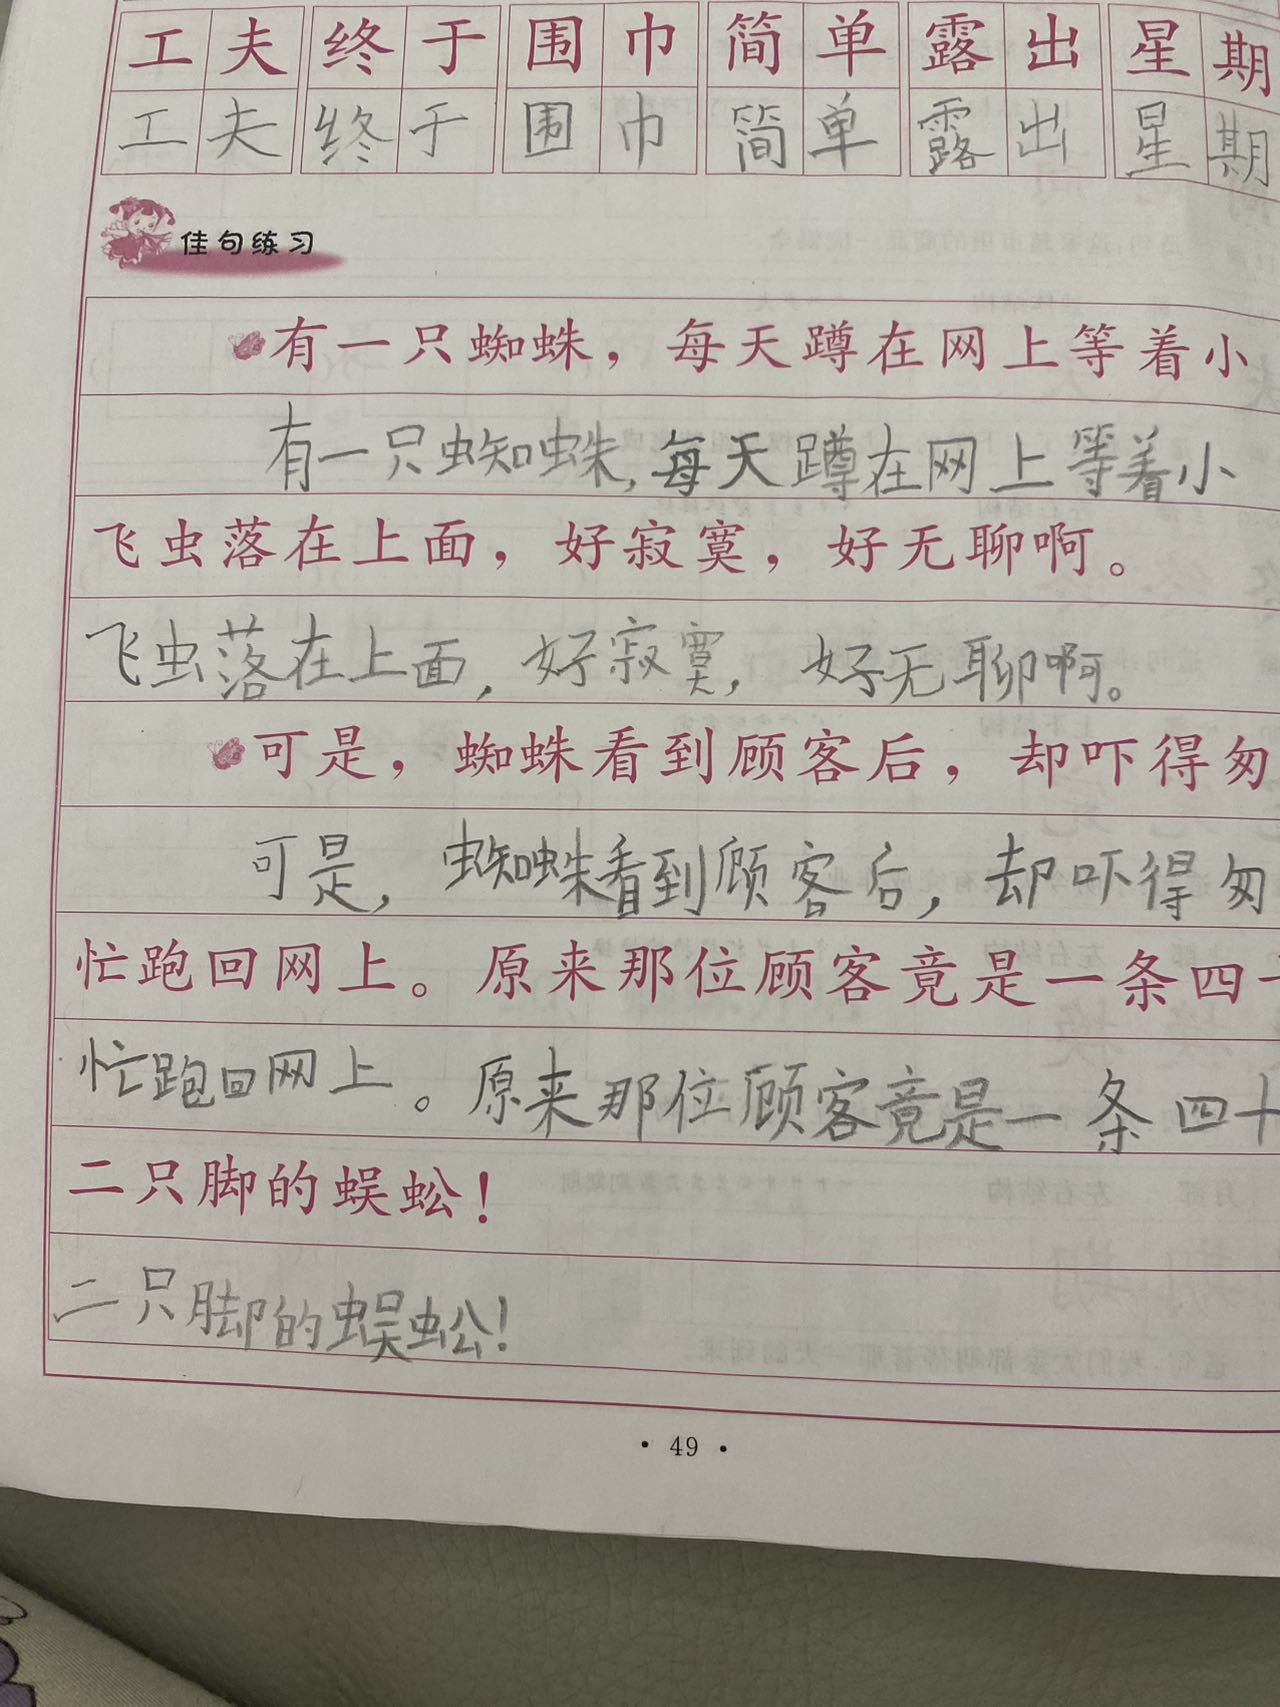 工夫 终于 围巾 简单 露出 星期
工夫 终于 围巾 简单 露出 星期
佳句练习
有一只蜘蛛，每天蹲在网上等着小
有一只蜘蛛,每天蹲在网上等着小
飞虫落在上面，好寂寞，好无聊啊。
飞虫落在上面,好寂寞,好无聊啊。
可是，蜘蛛看到顾客后，却吓得匆
可是,蜘蛛看到顾客后,却吓得匆
忙跑回网上。原来那位顾客竟是一条四十
忙跑回网上。原来那位顾客竟是一条四十
二只脚的蜈蚣！
二只脚的蜈蚣！
·49·